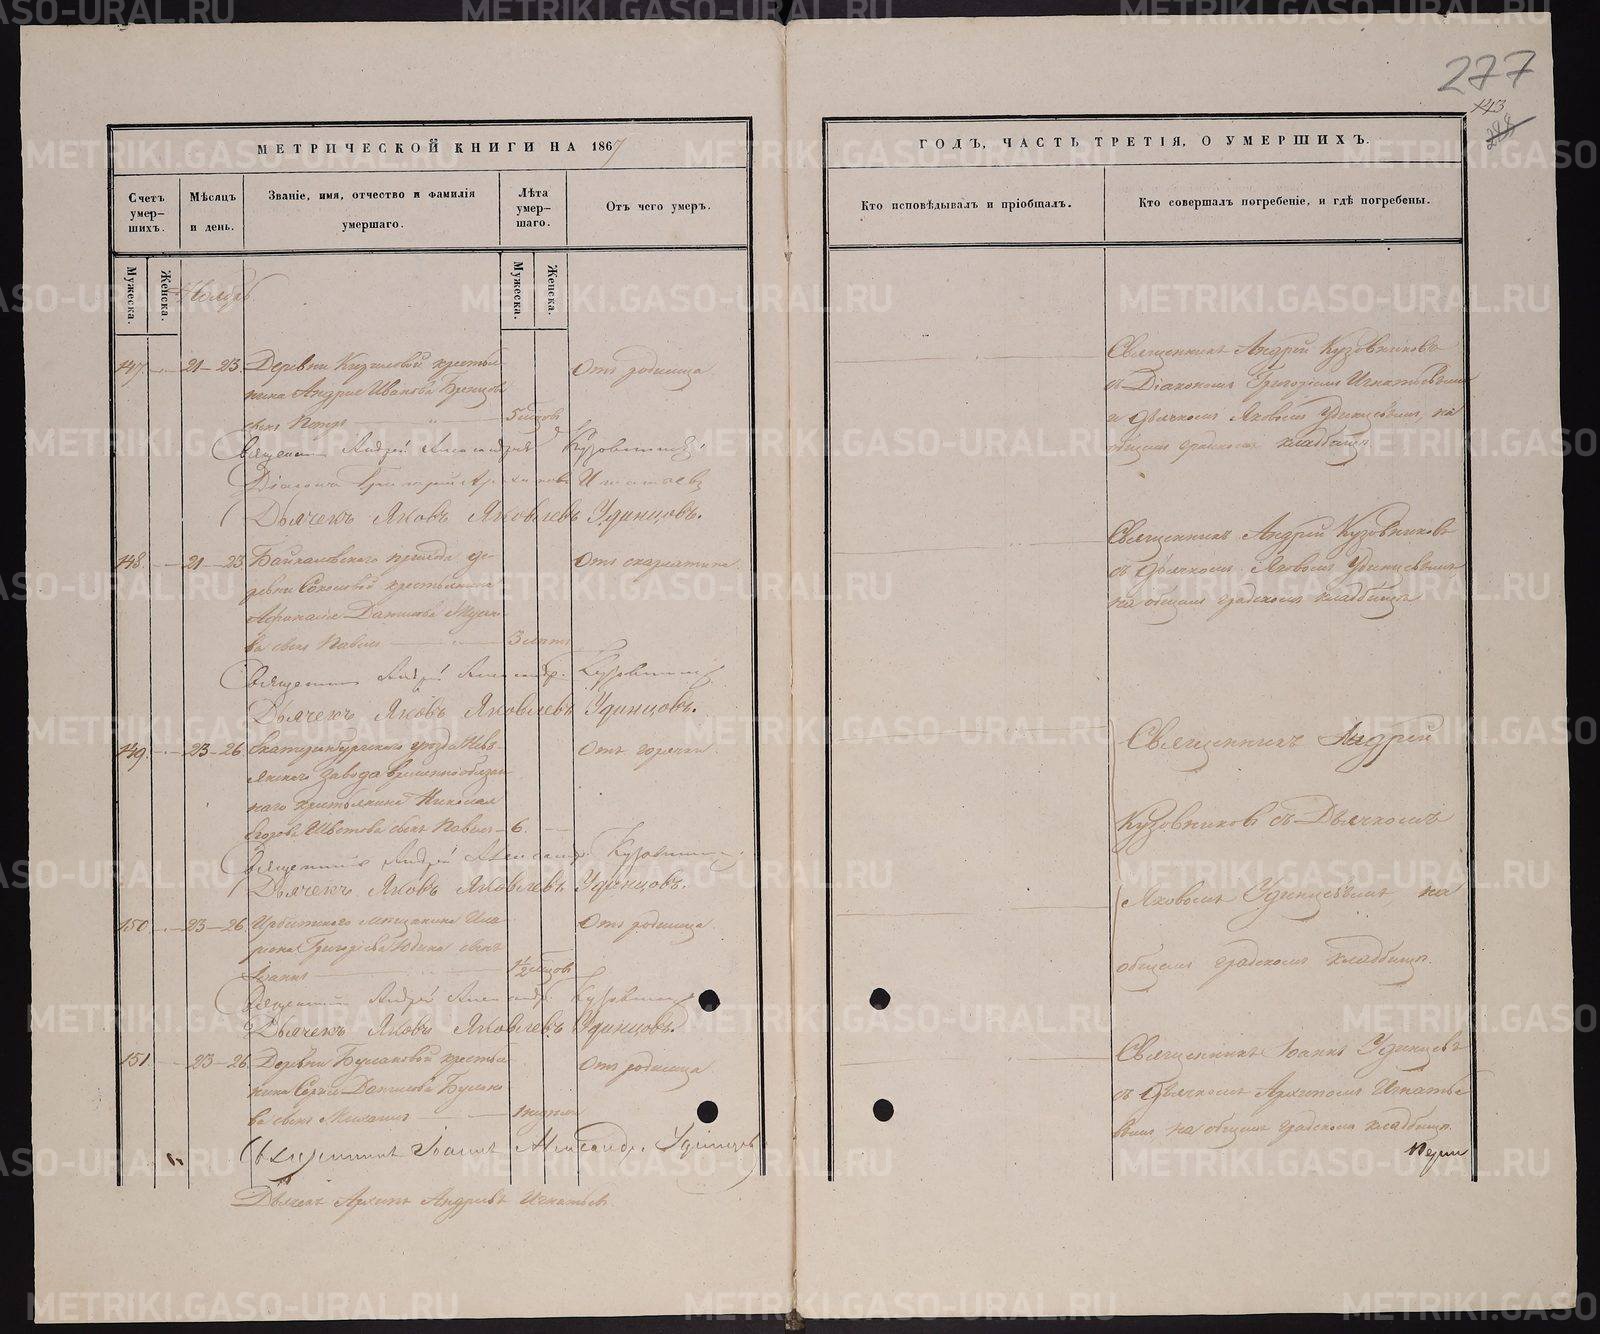 277
143
288
МЕТРИЧЕСКОЙ КНИГИ НА 1867
ГОДЪ, ЧАСТЬ ТРЕТІЯ, О УМЕРШИХЪ.
Счетъ умер-шихъ.
Мѣсяцъ и день.
Званіе, имя, отчество и фамилія умершаго.
Лѣта умер-шаго.
Отъ чего умеръ.
Кто исповѣдывалъ и пріобщалъ.
Кто совершалъ погребеніе, и гдѣ погребены.
Мужеска.
Женска.
Мужеска.
Женска.
147. 21-23. Деревни Кириловой крестья-
нина Андрея Иванова
сынъ Петръ 5 мѣсцовъ
Отъ родимца.
Священникъ Андрей Александровъ Кузовниковъ
Діаконъ Григорій Игнатьевъ
Дьячекъ Яковъ Яковлевъ Удинцовъ.
Священникъ Андрей Кузовниковъ
съ Діакономъ Григоріемъ Игнатьевымъ
и дьячкомъ Яковомъ Удинцевымъ, на
общемъ градскомъ кладбищѣ.
148. 21-23 Байкаловскаго прихода де-
ревни Соколовой крестьянина
Афанасія Данилова
сынъ Павелъ 3 лѣтъ
Отъ скарлатины.
Священникъ Андрей Александр. Кузовников.
Дьячекъ Яковъ Яковлевъ Удинцовъ.
Священникъ Андрей Кузовниковъ
съ дьячкомъ Яковомъ Удинцевымъ
на общемъ градскомъ кладбищѣ
149. 23-26 Екатеринбургскаго уѣзда Невь-
янскаго завода временнообязан-
наго крестьянина Николая
Егорова сынъ Павелъ 6.
Отъ горячки.
Священникъ Андрей Александр. Кузовников.
Дьячекъ Яковъ Яковлевъ Удинцовъ.
Священникъ Андрей
Кузовниковъ съ Дьячкомъ
Яковомъ Удинцевымъ, на
общемъ градскомъ кладбищѣ.
150 23-26 Ирбитскаго мѣщанина Ила-
ріона Григорьева Юдина сынъ
Іоаннъ 1½ мѣсцовъ
Отъ родимца.
Священникъ Андрей Александр. Кузовников
Дьячекъ Яковъ Яковлевъ Удинцовъ.
151. 23-26 Деревни Булановой крестья-
нина Сергія Данилова Булано-
ва сынъ Михаилъ 1 недѣли
Отъ родимца
Священникъ Іоаннъ Александр. Удинцевъ
Дьячекъ Архипъ Андреевъ Игнатьевъ
Священникъ Іоаннъ Удинцевъ
съ дьячкомъ Архипомъ Игнатье-
вымъ, на общемъ градскомъ кладбищѣ.
METRIKI.GASO-URAL.RU